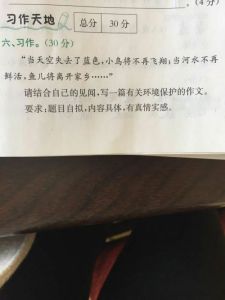 (4分)
习作天地 总分 30分
六、习作。(30分)
“当天空失去了蓝色,小鸟将不再飞翔;当河水不再
鲜活,鱼儿将离开家乡……”
请结合自己的见闻,写一篇有关环境保护的作文。
要求:题目自拟,内容具体,有真情实感。